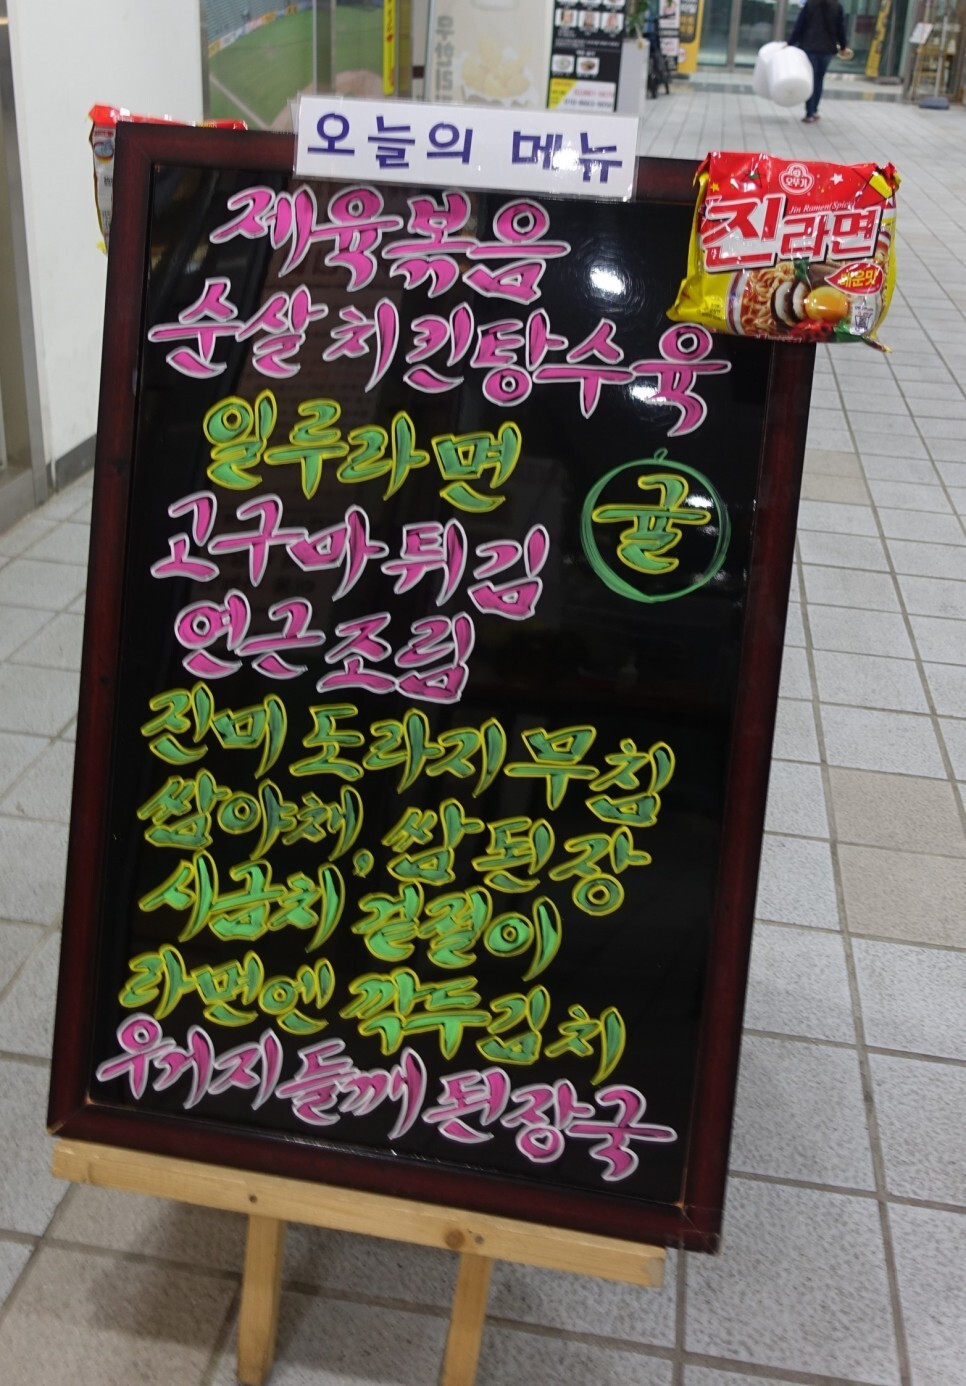 오늘의 메뉴
오뚜기
Jin Ramen(Spicy)
진라면
매운맛
제육볶음
순살치킨탕수육
일루라면
귤
고구마튀김
연근조림
진미도라지무침
쌈야채.쌈된장
시금치 겉절이
라면엔 깍두김치
우거지들깨된장국